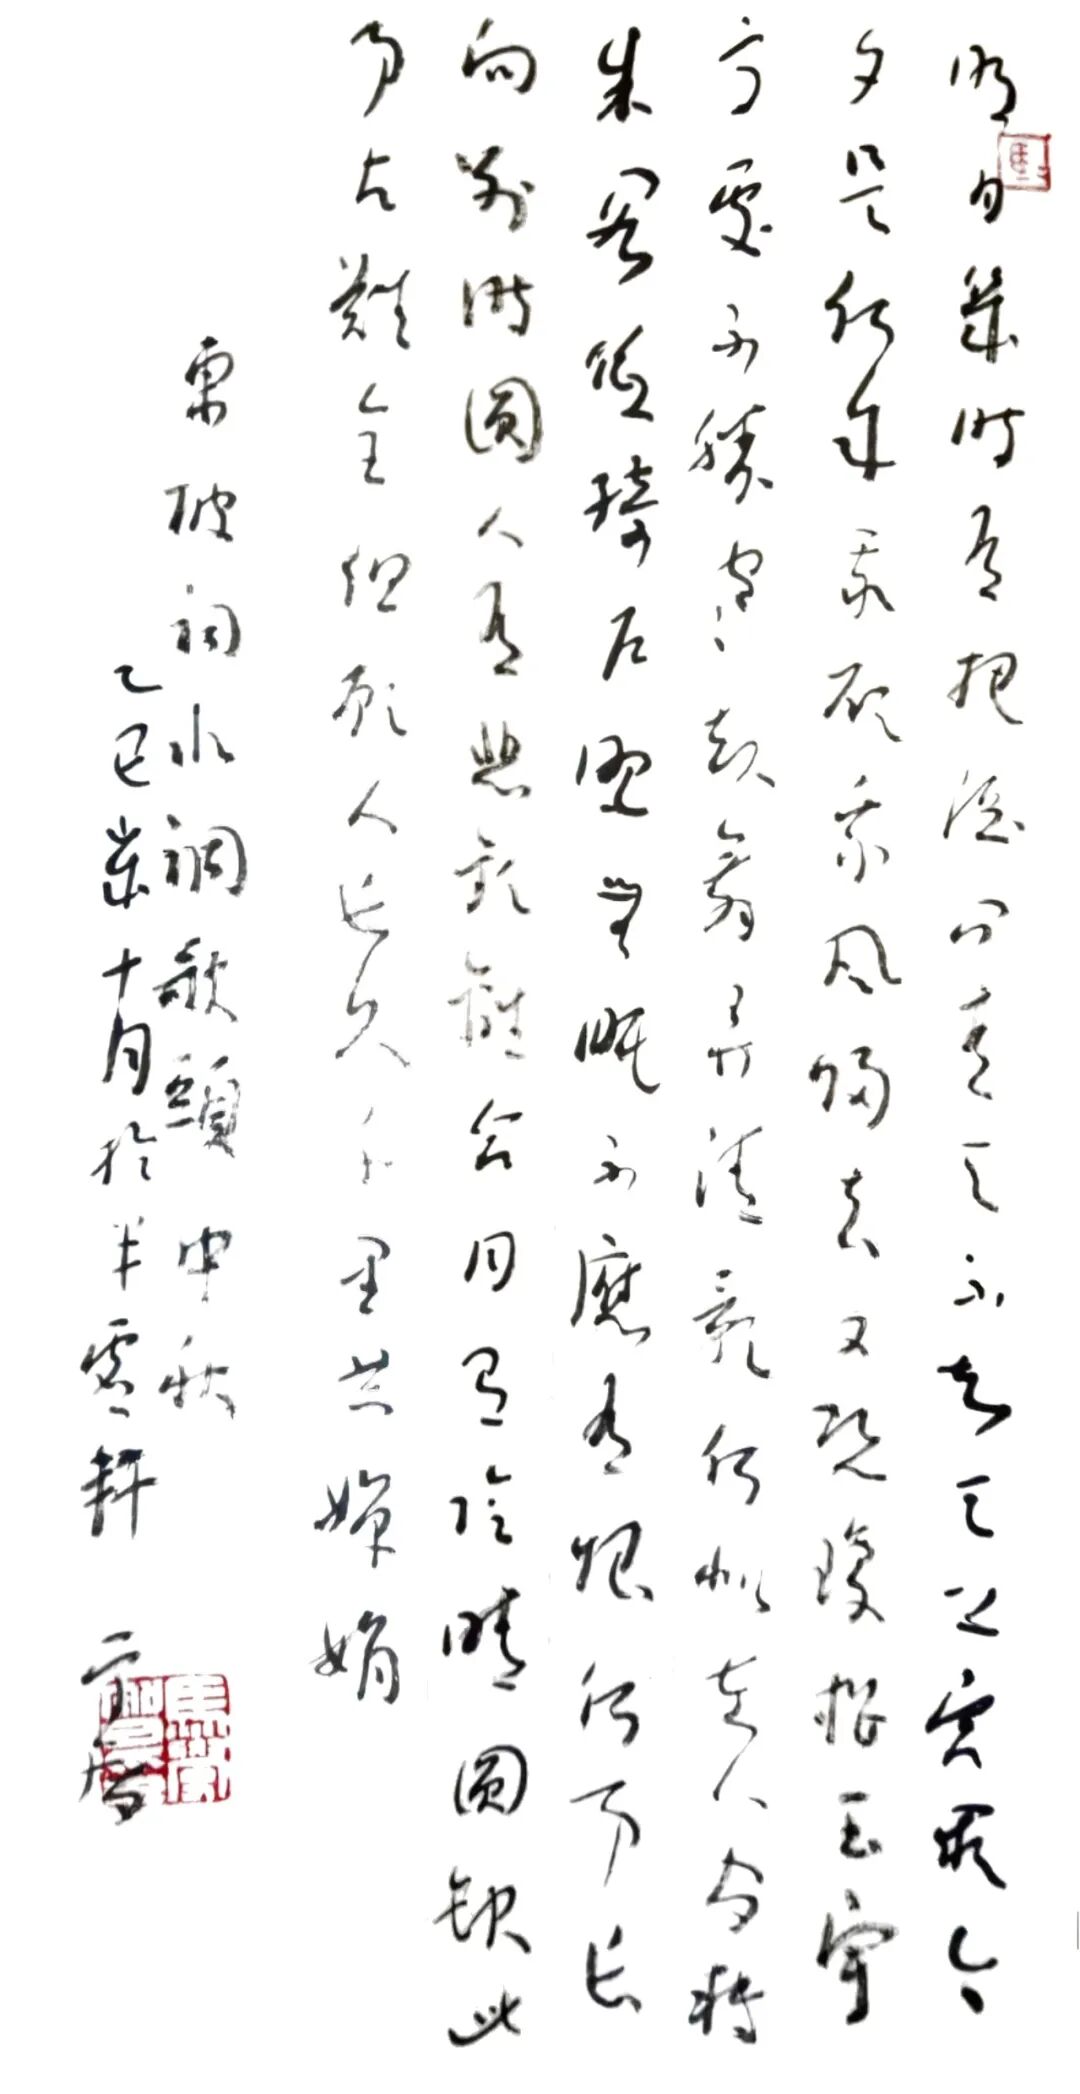 明月幾時有把酒問青天不知天上宮闕今
夕是何年我欲乘風歸去又恐瓊樓玉宇
高處不勝寒起舞弄清影何似在人間轉
朱閣低綺戶照無眠不應有恨何事長
向別時圓人有悲歡離合月有陰晴圓缺此
事古難全但願人長久千里共嬋娟
東坡詞水調歌頭中秋
乙巳歲十月於半軒